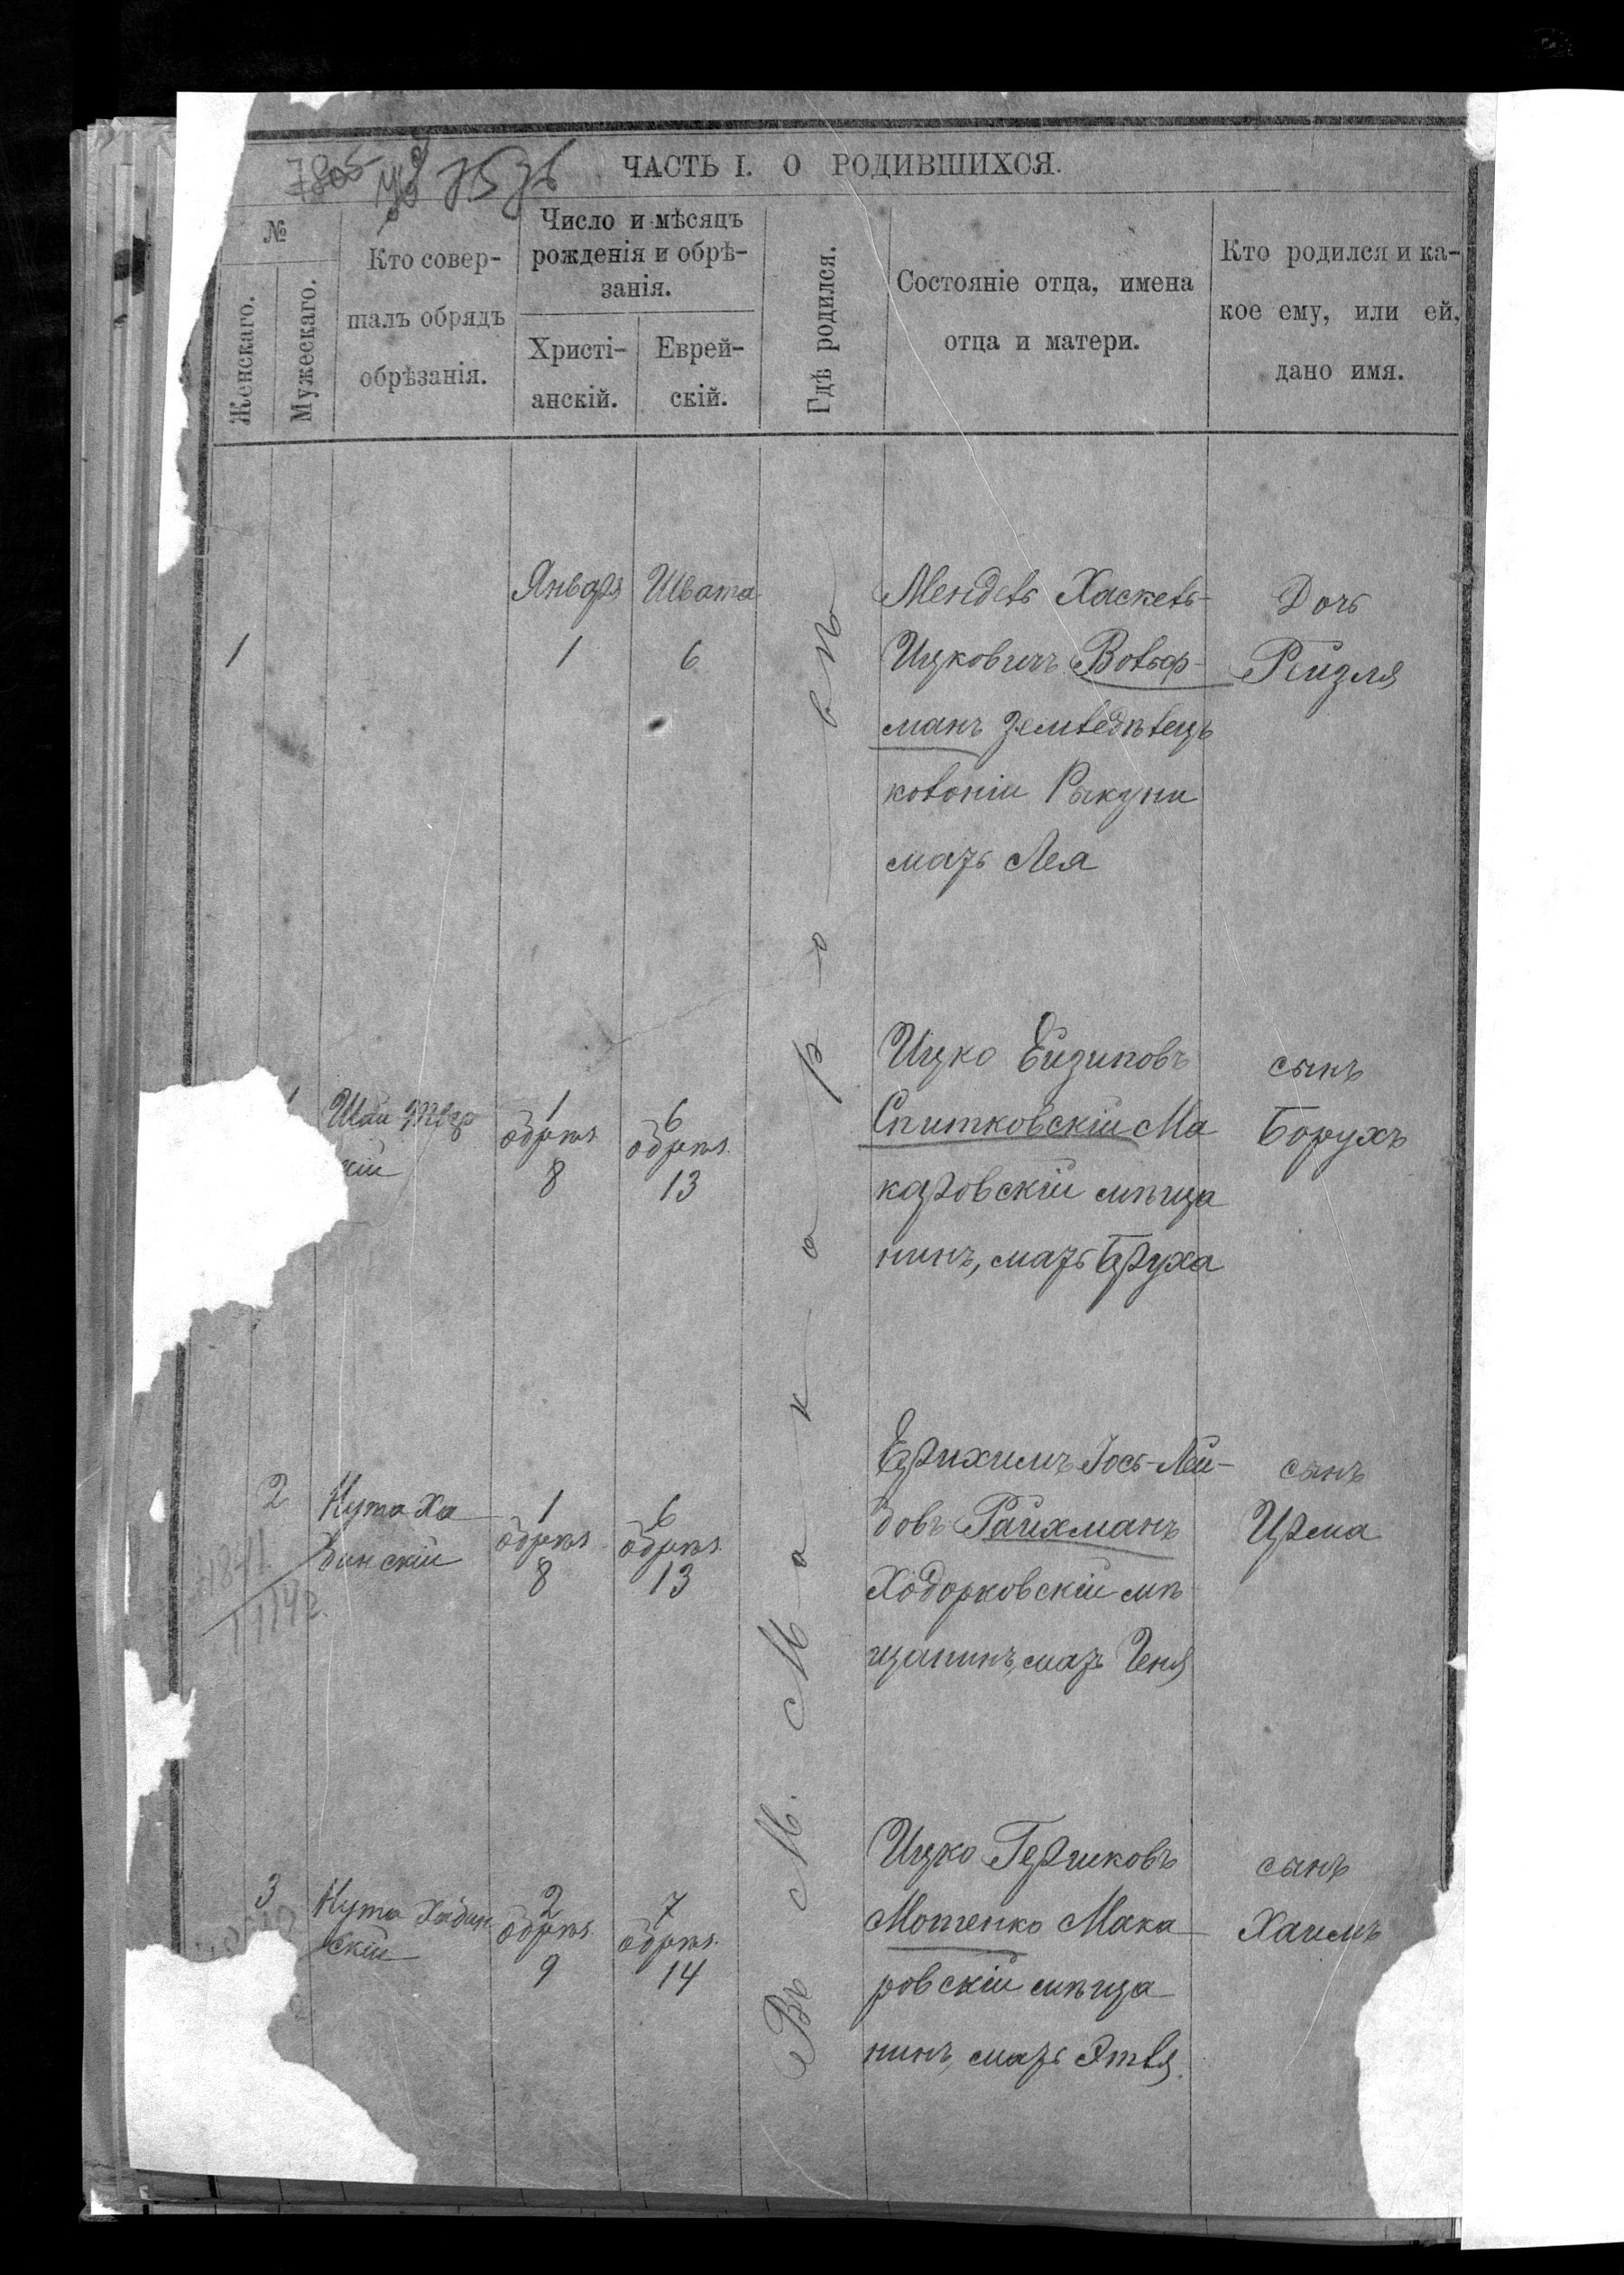 ЧАСТЬ I. О РОДИВШИХСЯ.
№
Женскаго.
Мужескаго.
Кто совер-
шалъ обрядъ
обрѣзанія.
Число и мѣсяцъ
рожденія и обрѣ-
занія.
Христі-
анскій.
Еврей-
скій.
Гдѣ родился.
Состояніе отца, имена
отца и матери.
Кто родился и ка-
кое ему, или ей,
дано имя.
Января
Швата
1
1
6
Мендель Хаскель-
Ицковичъ Вольф-
манъ земледѣлецъ
колоніи Рыкуни
мать Лея
Дочь
Рейзля
1
Шаи
скій
1
обрѣз.
8
6
обрѣз.
13
Ицко Ейзиковъ
Спитковскій Ма
каровскій мѣща
нинъ, мать Бруха
сынъ
Борухъ
2
Нута Ха
бинскій
1
обрѣз.
8
6
обрѣз.
13
Ерихимъ Іось-Лей-
бовъ Райхманъ
Ходорковскій мѣ
щанинъ, мать Геня
сынъ
Ирма
3
Нута Хабин
скій
2
обрѣз.
9
7
обрѣз.
14
Ицко Гершковъ
Мотенко Мака
ровскій мѣща
нинъ, мать Этля.
сынъ
Хаимъ
Въ М. Макаровѣ